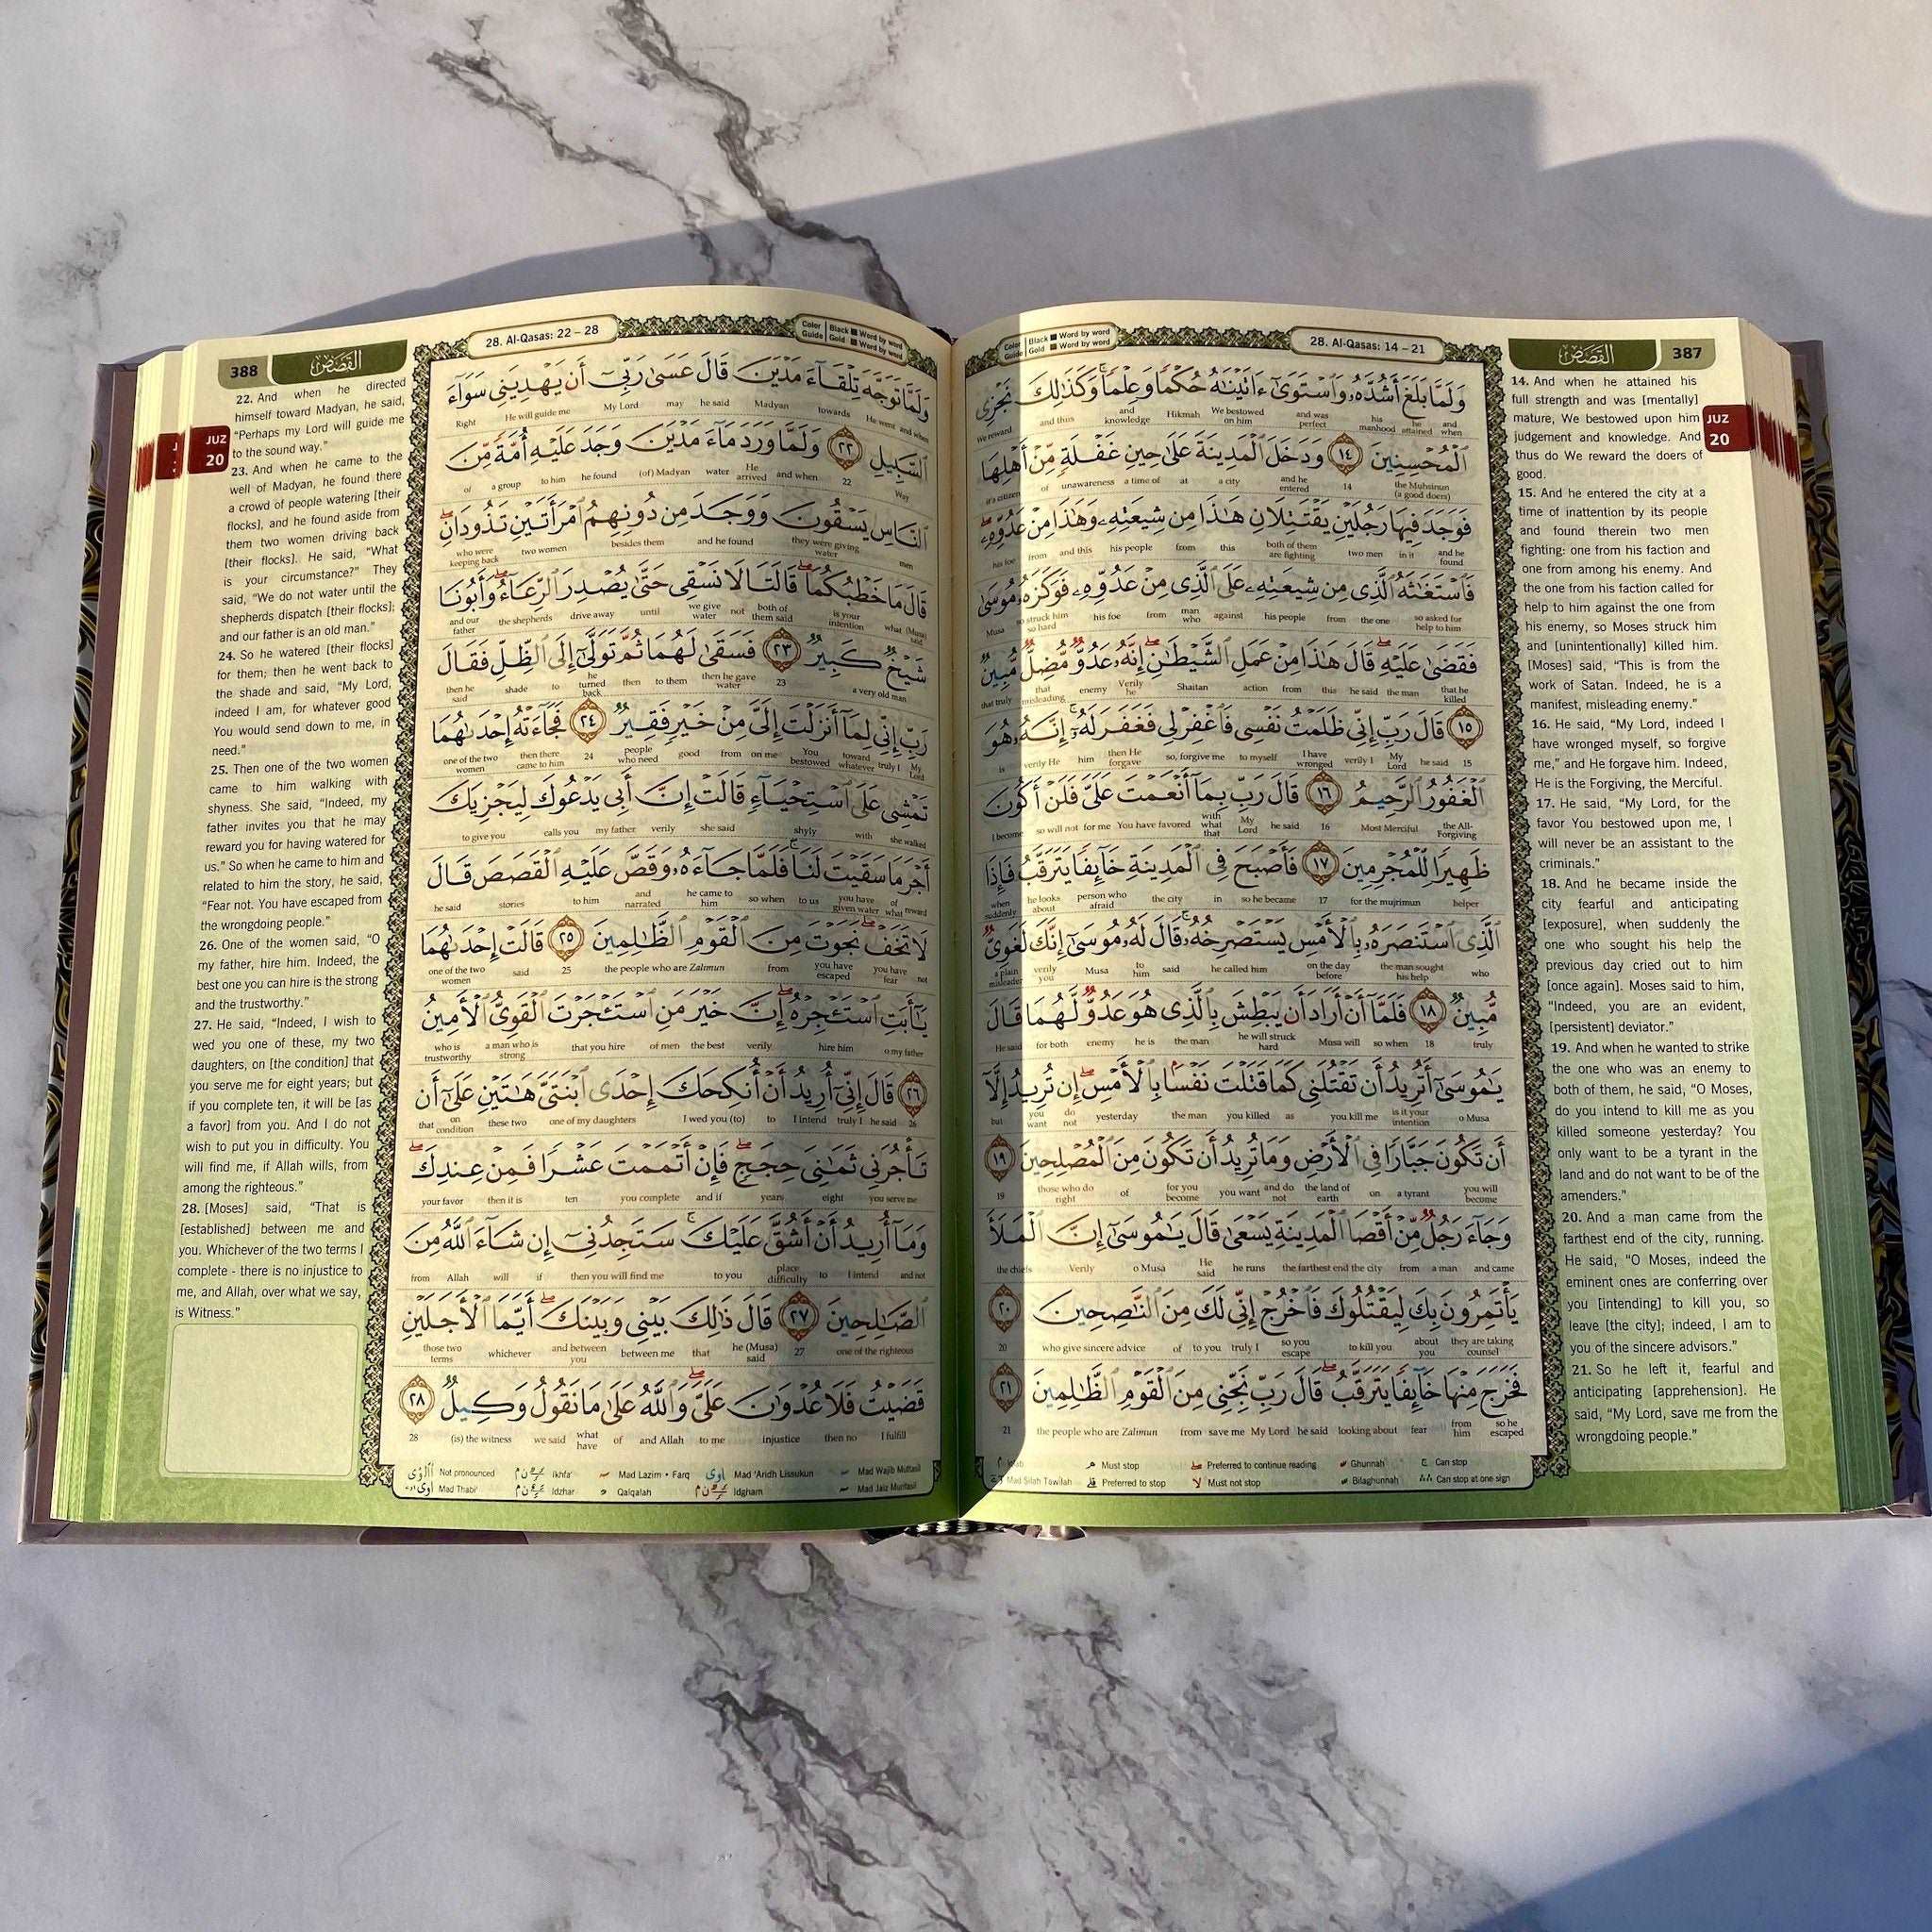 387
القصص
28. Al-Qasas: 14 – 21
Color Guide
Black Word by word
Gold Word by word
JUZ
20
وَلَمَّا بَلَغَ أَشُدَّهُۥ وَٱسْتَوَىٰٓ ءَاتَيْنَٰهُ حُكْمًا وَعِلْمًا ۚ وَكَذَٰلِكَ نَجْزِى
and when he attained his manhood and was perfect We bestowed on him Hikmah and knowledge and thus We reward
ٱلْمُحْسِنِينَ ١٤ وَدَخَلَ ٱلْمَدِينَةَ عَلَىٰ حِينِ غَفْلَةٍ مِّنْ أَهْلِهَا
the Muhsinun (a good doers) 14 and he entered a city at a time of unawareness of it's citizen
فَوَجَدَ فِيهَا رَجُلَيْنِ يَقْتَتِلَانِ هَٰذَا مِن شِيعَتِهِۦ وَهَٰذَا مِنْ عَدُوِّهِۦ ۖ
and he found in it two men both of them are fighting this from his people and this from his foe
فَٱسْتَغَٰثَهُ ٱلَّذِى مِن شِيعَتِهِۦ عَلَى ٱلَّذِى مِنْ عَدُوِّهِۦ فَوَكَزَهُۥ مُوسَىٰ
so asked for help to him the one from his people against man who from his foe so struck him so hard Musa
فَقَضَىٰ عَلَيْهِ ۖ قَالَ هَٰذَا مِنْ عَمَلِ ٱلشَّيْطَٰنِ ۖ إِنَّهُۥ عَدُوٌّ مُّضِلٌّ مُّبِينٌ
that he killed the man he said this from action Shaitan Verily he enemy that misleading that truly
١٥ قَالَ رَبِّ إِنِّى ظَلَمْتُ نَفْسِى فَٱغْفِرْ لِى فَغَفَرَ لَهُۥٓ ۚ إِنَّهُۥ هُوَ
15 he said My Lord verily I I have wronged to myself so, forgive me then He forgave him verily He is
ٱلْغَفُورُ ٱلرَّحِيمُ ١٦ قَالَ رَبِّ بِمَآ أَنْعَمْتَ عَلَىَّ فَلَنْ أَكُونَ
the All-Forgiving Most Merciful 16 he said My Lord with what that You have favored for me so will not I become
ظَهِيرًا لِّلْمُجْرِمِينَ ١٧ فَأَصْبَحَ فِى ٱلْمَدِينَةِ خَآئِفًا يَتَرَقَّبُ فَإِذَا
helper for the mujrimun 17 so he became in the city person who afraid he looks about when suddenly
ٱلَّذِى ٱسْتَنصَرَهُۥ بِٱلْأَمْسِ يَسْتَصْرِخُهُۥ ۚ قَالَ لَهُۥ مُوسَىٰٓ إِنَّكَ لَغَوِىٌّ
who the man sought his help on the day before he called him said to him Musa verily you a plain misleader
مُّبِينٌ ١٨ فَلَمَّآ أَنْ أَرَادَ أَن يَبْطِشَ بِٱلَّذِى هُوَ عَدُوٌّ لَّهُمَا قَالَ
truly 18 so when Musa will he will struck hard the man he is enemy for both He said
يَٰمُوسَىٰٓ أَتُرِيدُ أَن تَقْتُلَنِى كَمَا قَتَلْتَ نَفْسًۢا بِٱلْأَمْسِ ۖ إِن تُرِيدُ إِلَّآ
o Musa is it your intention you kill me as you killed the man yesterday do not you want but
أَن تَكُونَ جَبَّارًا فِى ٱلْأَرْضِ وَمَا تُرِيدُ أَن تَكُونَ مِنَ ٱلْمُصْلِحِينَ ١٩
you will become a tyrant on the land of earth and do not you want for you become of those who do right 19
وَجَآءَ رَجُلٌ مِّنْ أَقْصَا ٱلْمَدِينَةِ يَسْعَىٰ قَالَ يَٰمُوسَىٰٓ إِنَّ ٱلْمَلَأَ
and came a man from the farthest end the city he runs He said o Musa Verily the chiefs
يَأْتَمِرُونَ بِكَ لِيَقْتُلُوكَ فَٱخْرُجْ إِنِّى لَكَ مِنَ ٱلنَّٰصِحِينَ ٢٠
they are taking counsel about you to kill you so you escape truly I to you of who give sincere advice 20
فَخَرَجَ مِنْهَا خَآئِفًا يَتَرَقَّبُ ۖ قَالَ رَبِّ نَجِّنِى مِنَ ٱلْقَوْمِ ٱلظَّٰلِمِينَ ٢١
so he escaped from him fear looking about he said My Lord save me from the people who are Zalimun 21
Must stop Preferred to continue reading Ghunnah Can stop
Mad Silah Tawilah Preferred to stop Must not stop Bilaghunnah Can stop at one sign
14. And when he attained his
full strength and was [mentally]
mature, We bestowed upon him
judgement and knowledge. And
thus do We reward the doers of
good.
15. And he entered the city at a
time of inattention by its people
and found therein two men
fighting: one from his faction and
one from among his enemy. And
the one from his faction called for
help to him against the one from
his enemy, so Moses struck him
and [unintentionally] killed him.
[Moses] said, “This is from the
work of Satan. Indeed, he is a
manifest, misleading enemy.”
16. He said, “My Lord, indeed I
have wronged myself, so forgive
me,” and He forgave him. Indeed,
He is the Forgiving, the Merciful.
17. He said, “My Lord, for the
favor You bestowed upon me, I
will never be an assistant to the
criminals.”
18. And he became inside the
city fearful and anticipating
[exposure], when suddenly the
one who sought his help the
previous day cried out to him
[once again]. Moses said to him,
“Indeed, you are an evident,
[persistent] deviator.”
19. And when he wanted to strike
the one who was an enemy to
both of them, he said, “O Moses,
do you intend to kill me as you
killed someone yesterday? You
only want to be a tyrant in the
land and do not want to be of the
amenders.”
20. And a man came from the
farthest end of the city, running.
He said, “O Moses, indeed the
eminent ones are conferring over
you [intending] to kill you, so
leave [the city]; indeed, I am to
you of the sincere advisors.”
21. So he left it, fearful and
anticipating [apprehension]. He
said, “My Lord, save me from the
wrongdoing people.”
388
القصص
28. Al-Qasas: 22 – 28
Color Guide
Black Word by word
Gold Word by word
JUZ
20
وَلَمَّا تَوَجَّهَ تِلْقَآءَ مَدْيَنَ قَالَ عَسَىٰ رَبِّىٓ أَن يَهْدِيَنِى سَوَآءَ
and when He went towards Madyan he said may My Lord He will guide me Right
ٱلسَّبِيلِ ٢٢ وَلَمَّا وَرَدَ مَآءَ مَدْيَنَ وَجَدَ عَلَيْهِ أُمَّةً مِّنَ
Way 22 and when He arrived water (of) Madyan he found to him a group of
ٱلنَّاسِ يَسْقُونَ وَوَجَدَ مِن دُونِهِمُ ٱمْرَأَتَيْنِ تَذُودَانِ ۖ
men they were giving water and he found besides them two women who were keeping back
قَالَ مَا خَطْبُكُمَا ۖ قَالَتَا لَا نَسْقِى حَتَّىٰ يُصْدِرَ ٱلرِّعَآءُ ۖ وَأَبُونَا
(Musa) said what is your intention both of them said not we give water until drive away the shepherds and our father
شَيْخٌ كَبِيرٌ ٢٣ فَسَقَىٰ لَهُمَا ثُمَّ تَوَلَّىٰٓ إِلَى ٱلظِّلِّ فَقَالَ
a very old man 23 then he gave water to them then he turned back to shade then he said
رَبِّ إِنِّى لِمَآ أَنزَلْتَ إِلَىَّ مِنْ خَيْرٍ فَقِيرٌ ٢٤ فَجَآءَتْهُ إِحْدَىٰهُمَا
My Lord truly I toward whatever You bestowed on me from good people who need 24 then there came to him one of the two women
تَمْشِى عَلَى ٱسْتِحْيَآءٍ قَالَتْ إِنَّ أَبِى يَدْعُوكَ لِيَجْزِيَكَ
she walked with shyly she said verily my father calls you to give you
أَجْرَ مَا سَقَيْتَ لَنَا ۚ فَلَمَّا جَآءَهُۥ وَقَصَّ عَلَيْهِ ٱلْقَصَصَ قَالَ
reward of what you have given water to us so when he came to him and narrated to him stories he said
لَا تَخَفْ ۖ نَجَوْتَ مِنَ ٱلْقَوْمِ ٱلظَّٰلِمِينَ ٢٥ قَالَتْ إِحْدَىٰهُمَا
not you have fear you have escaped from the people who are Zalimun 25 said one of the two women
يَٰٓأَبَتِ ٱسْتَـْٔجِرْهُ ۖ إِنَّ خَيْرَ مَنِ ٱسْتَـْٔجَرْتَ ٱلْقَوِىُّ ٱلْأَمِينُ
o my father hire him verily the best of men that you hire a man who is strong who is trustworthy
٢٦ قَالَ إِنِّىٓ أُرِيدُ أَنْ أُنكِحَكَ إِحْدَى ٱبْنَتَىَّ هَٰتَيْنِ عَلَىٰٓ أَن
26 he said truly I I intend to I wed you (to) one of my daughters these two on condition that
تَأْجُرَنِى ثَمَٰنِىَ حِجَجٍ ۖ فَإِنْ أَتْمَمْتَ عَشْرًا فَمِنْ عِندِكَ ۖ
you serve me eight years and if you complete ten then it is your favor
وَمَآ أُرِيدُ أَنْ أَشُقَّ عَلَيْكَ ۚ سَتَجِدُنِىٓ إِن شَآءَ ٱللَّهُ مِنَ
and not I intend to place difficulty to you then you will find me if will Allah from
ٱلصَّٰلِحِينَ ٢٧ قَالَ ذَٰلِكَ بَيْنِى وَبَيْنَكَ ۖ أَيَّمَا ٱلْأَجَلَيْنِ
one of the righteous 27 he (Musa) said that between me and between you whichever those two terms
قَضَيْتُ فَلَا عُدْوَٰنَ عَلَىَّ ۖ وَٱللَّهُ عَلَىٰ مَا نَقُولُ وَكِيلٌ ٢٨
I fulfill then no injustice to me and Allah of what have we said (is) the witness 28
Not pronounced Ikhfa' Mad Lazim • Farq Mad 'Aridh Lissukun Mad Wajib Muttasil
Mad Thabi' Idzhar Qalqalah Idgham Mad Jaiz Munfasil
22. And when he directed
himself toward Madyan, he said,
“Perhaps my Lord will guide me
to the sound way.”
23. And when he came to the
well of Madyan, he found there
a crowd of people watering [their
flocks], and he found aside from
them two women driving back
[their flocks]. He said, “What
is your circumstance?” They
said, “We do not water until the
shepherds dispatch [their flocks];
and our father is an old man.”
24. So he watered [their flocks]
for them; then he went back to
the shade and said, “My Lord,
indeed I am, for whatever good
You would send down to me, in
need.”
25. Then one of the two women
came to him walking with
shyness. She said, “Indeed, my
father invites you that he may
reward you for having watered for
us.” So when he came to him and
related to him the story, he said,
“Fear not. You have escaped from
the wrongdoing people.”
26. One of the women said, “O
my father, hire him. Indeed, the
best one you can hire is the strong
and the trustworthy.”
27. He said, “Indeed, I wish to
wed you one of these, my two
daughters, on [the condition] that
you serve me for eight years; but
if you complete ten, it will be [as
a favor] from you. And I do not
wish to put you in difficulty. You
will find me, if Allah wills, from
among the righteous.”
28. [Moses] said, “That is
[established] between me and
you. Whichever of the two terms I
complete - there is no injustice to
me, and Allah, over what we say,
is Witness.”